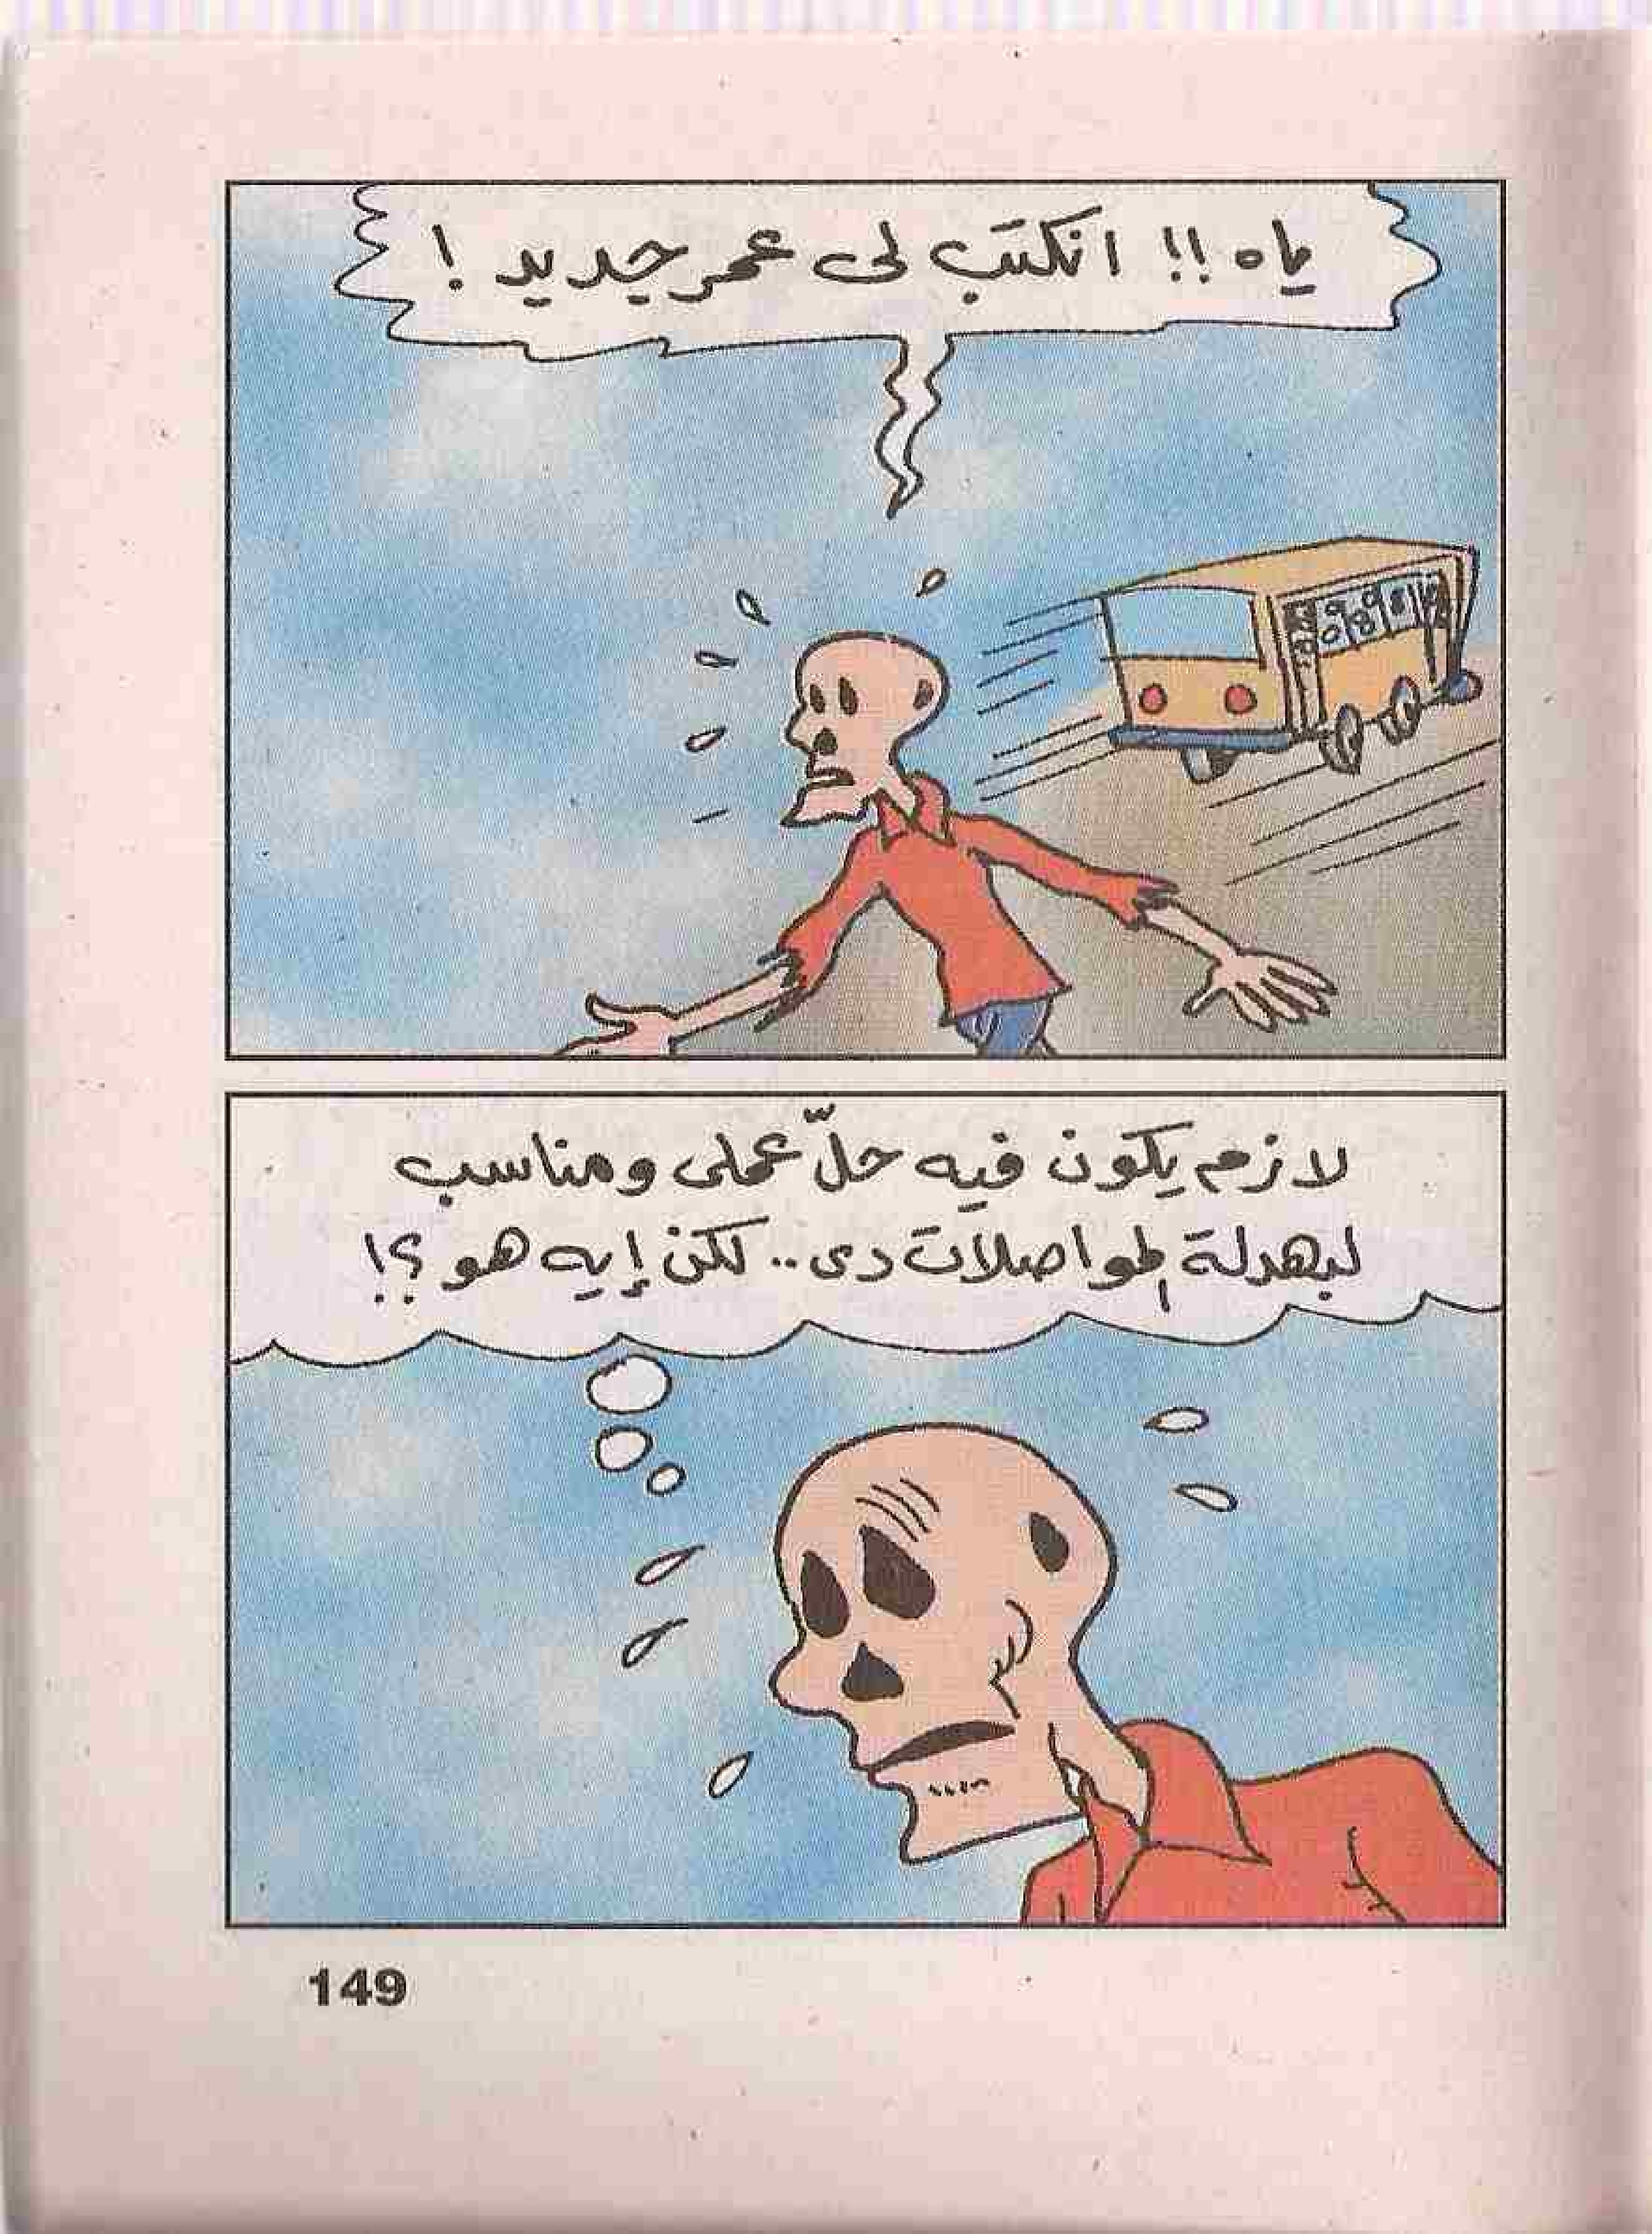 ياه !! انكتب لى عمر جديد !
لازم يكون فيه حلّ عملى ومناسب
لبهدلة المواصلات دى.. لكن إيه هو؟!
149